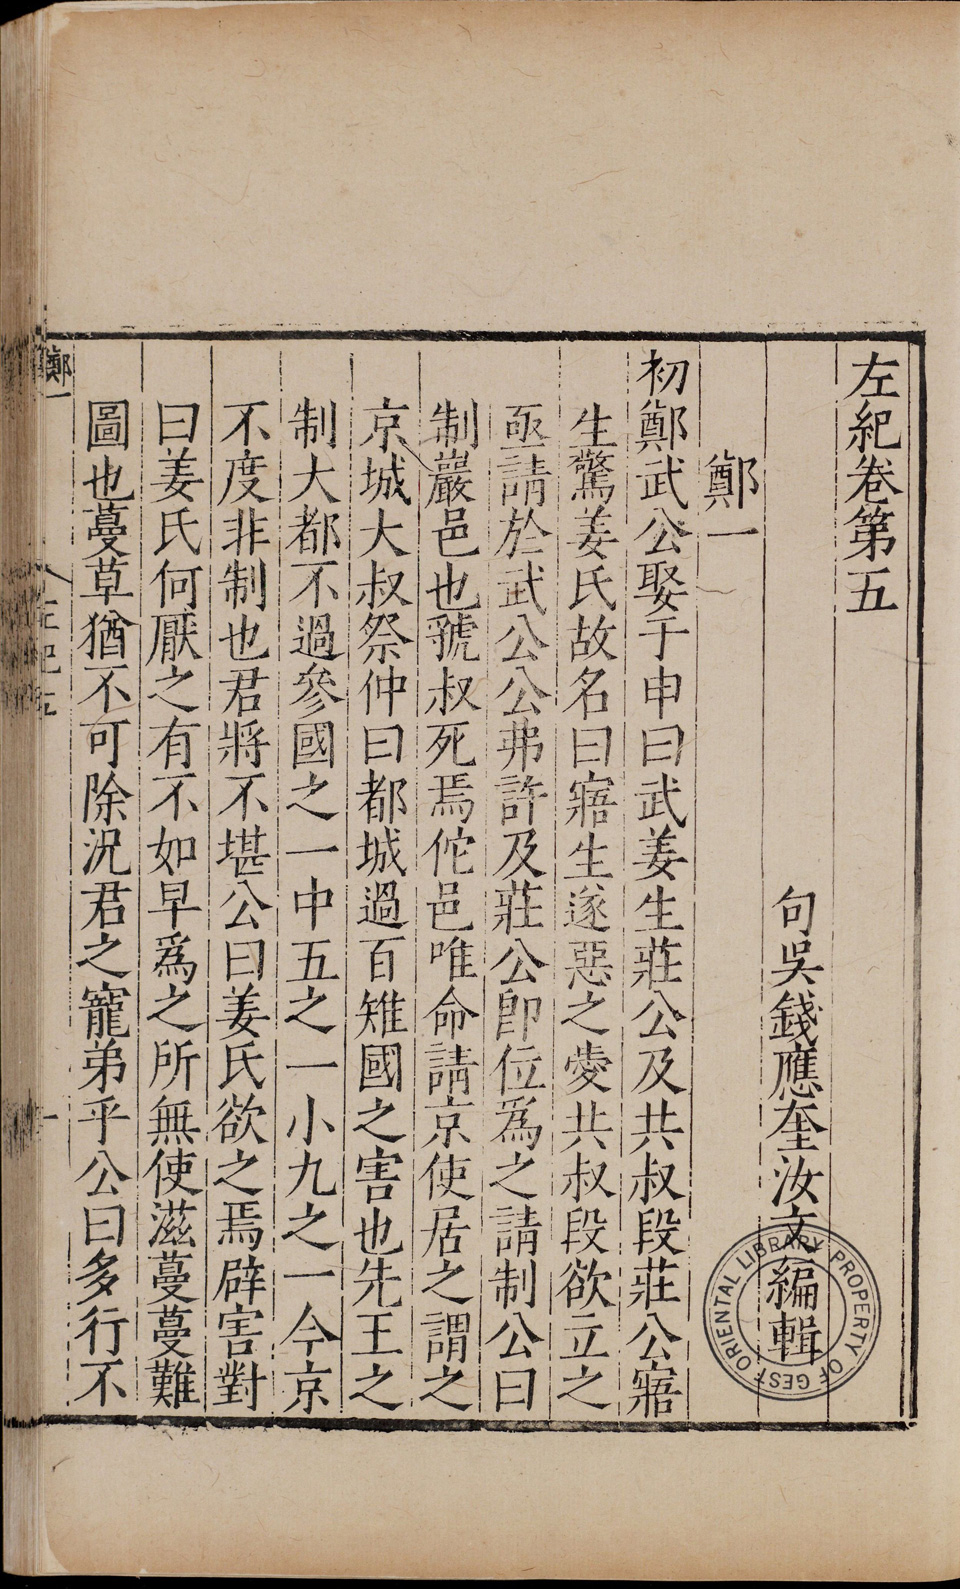 左紀卷第五
句吳錢應奎汝文編輯
鄭一
初鄭武公娶于申曰武姜生莊公及共叔段莊公寤
生驚姜氏故名曰寤生遂惡之愛共叔段欲立之
亟請於武公公弗許及莊公卽位爲之請制公曰
制巖邑也虢叔死焉佗邑唯命請京使居之謂之
京城大叔祭仲曰都城過百雉國之害也先王之
制大都不過參國之一中五之一小九之一今京
不度非制也君將不堪公曰姜氏欲之焉辟害對
曰姜氏何厭之有不如早爲之所無使滋蔓蔓難
圖也蔓草猶不可除況君之寵弟乎公曰多行不
鄭一
左紀五
一
ORIENTAL LIBRARY PROPERTY OF GEST